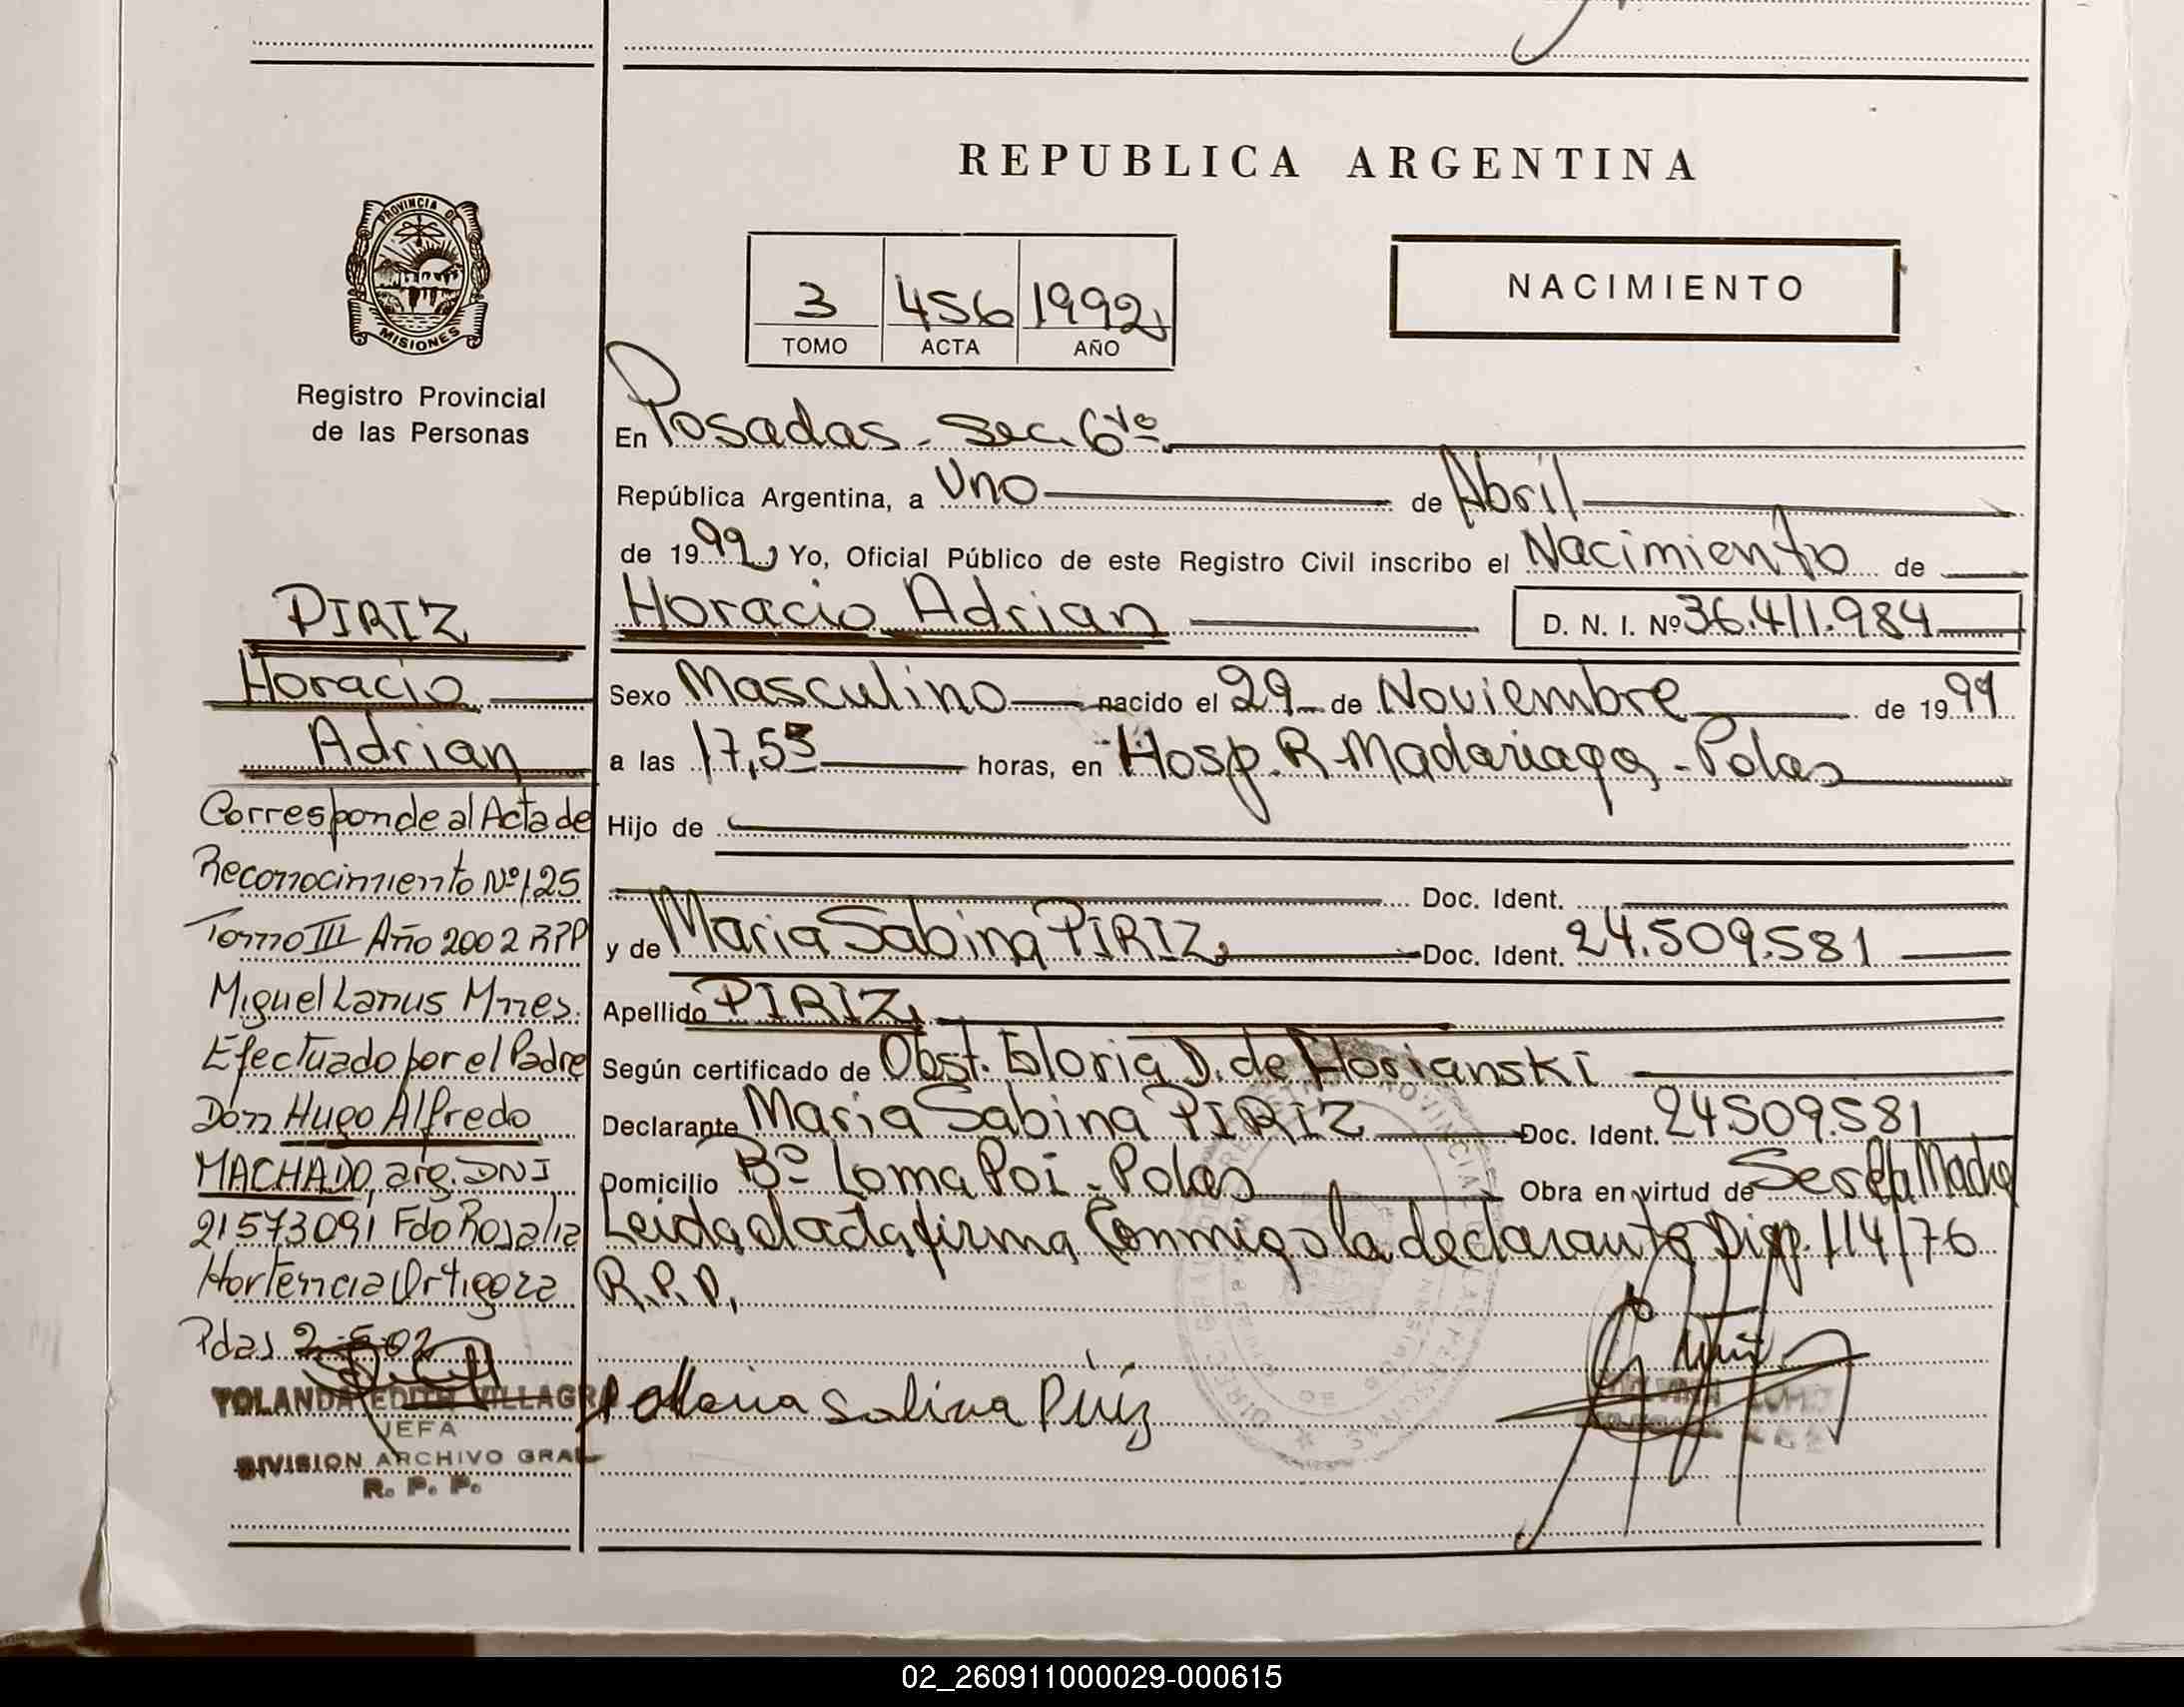 REPUBLICA ARGENTINA
PROVINCIA DE
MISIONES
Registro Provincial
de las Personas
3 456 1992
TOMO ACTA AÑO
NACIMIENTO
En Posadas - Sec. 6ta
República Argentina, a Uno de Abril
de 1992 Yo, Oficial Público de este Registro Civil inscribo el Nacimiento de
Horacio Adrian D. N. I. Nº 36.411.984
Sexo Masculino nacido el 29 de Noviembre de 1991
a las 17,55 horas, en Hosp. R. Madariaga - Pdas
Hijo de
Doc. Ident.
y de Maria Sabina PIRIZ Doc. Ident. 24.509.581
Apellido PIRIZ
Según certificado de Obst. Gloria D. de Florianski
Declarante Maria Sabina PIRIZ Doc. Ident. 24509.581
Domicilio Bº Loma Poi - Pdas Obra en virtud de Ser la Madre
Leida el acta firma Conmigo la declarante Disp. 114/76
R.P.P.
Maria Sabina Piriz
PIRIZ
Horacio
Adrian
Corresponde al Acta de
Reconocimiento Nº 125
Tomo III Año 2002 RPP
Miguel Lanus Mnes.
Efectuado por el Padre
Don Hugo Alfredo
MACHADO, arg. DNI
21573091 Fdo Rosalia
Hortencia Ortigoza
Pdas 2-5-02
YOLANDA EDITH VILLAGRA
JEFA
DIVISION ARCHIVO GRAL
R. P. P.
02_260911000029-000615